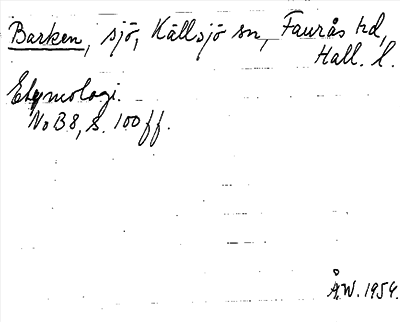 Barken, sjö, Källsjö sn, Faurås hd,
Hall. l.
Etymologi.
NoB 8, s. 100 ff.
Å.W. 1954.